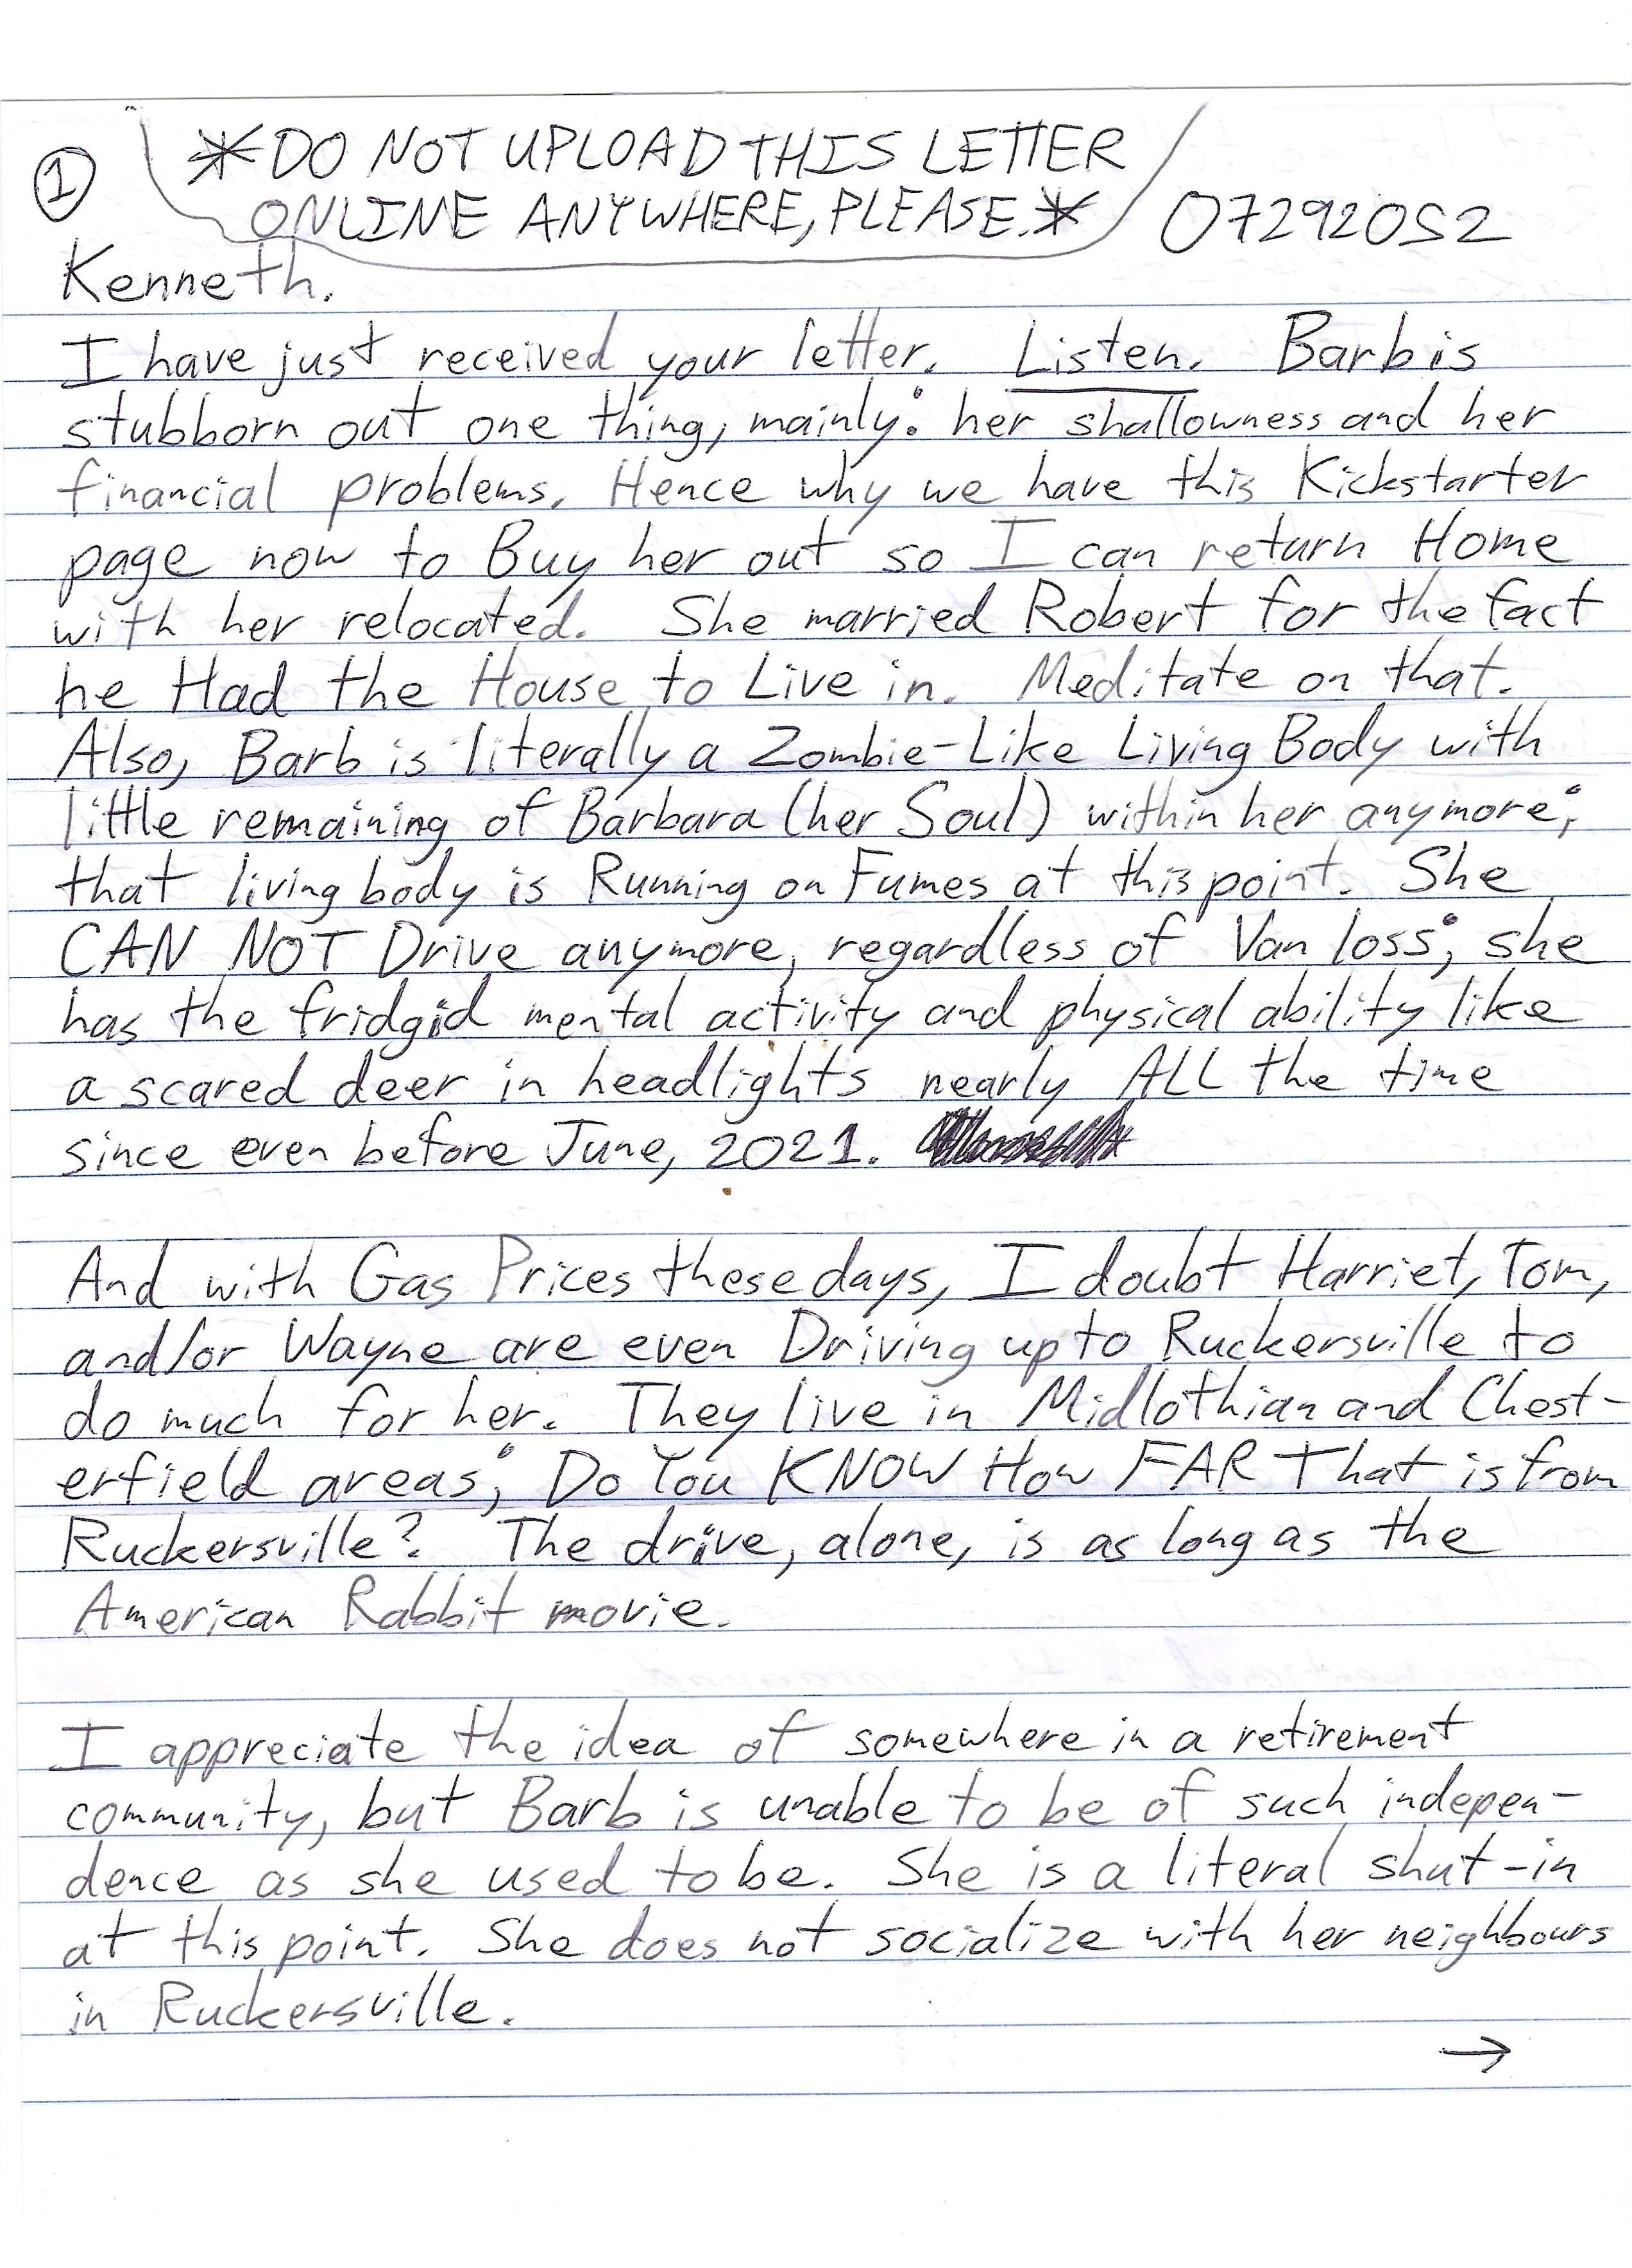 ①
*DO NOT UPLOAD THIS LETTER
ONLINE ANYWHERE, PLEASE.*
07292052
Kenneth.
I have just received your letter. Listen. Barb is
stubborn out one thing, mainly: her shallowness and her
financial problems. Hence why we have this Kickstarter
page now to Buy her out so I can return Home
with her relocated. She married Robert for the fact
he Had the House to Live in. Meditate on that.
Also, Barb is literally a Zombie-Like Living Body with
little remaining of Barbara (her Soul) within her anymore;
that living body is Running on Fumes at this point. She
CAN NOT Drive anymore, regardless of Van loss; she
has the fridgid mental activity and physical ability like
a scared deer in headlights nearly ALL the time
since even before June, 2021.
And with Gas Prices these days, I doubt Harriet, Tom,
and/or Wayne are even Driving up to Ruckersville to
do much for her. They live in Midlothian and Chest-
erfield areas; Do You KNOW How FAR That is from
Ruckersville? The drive, alone, is as long as the
American Rabbit movie.
I appreciate the idea of somewhere in a retirement
community, but Barb is unable to be of such indepen-
dence as she used to be. She is a literal shut-in
at this point. She does not socialize with her neighbours
in Ruckersville.
→